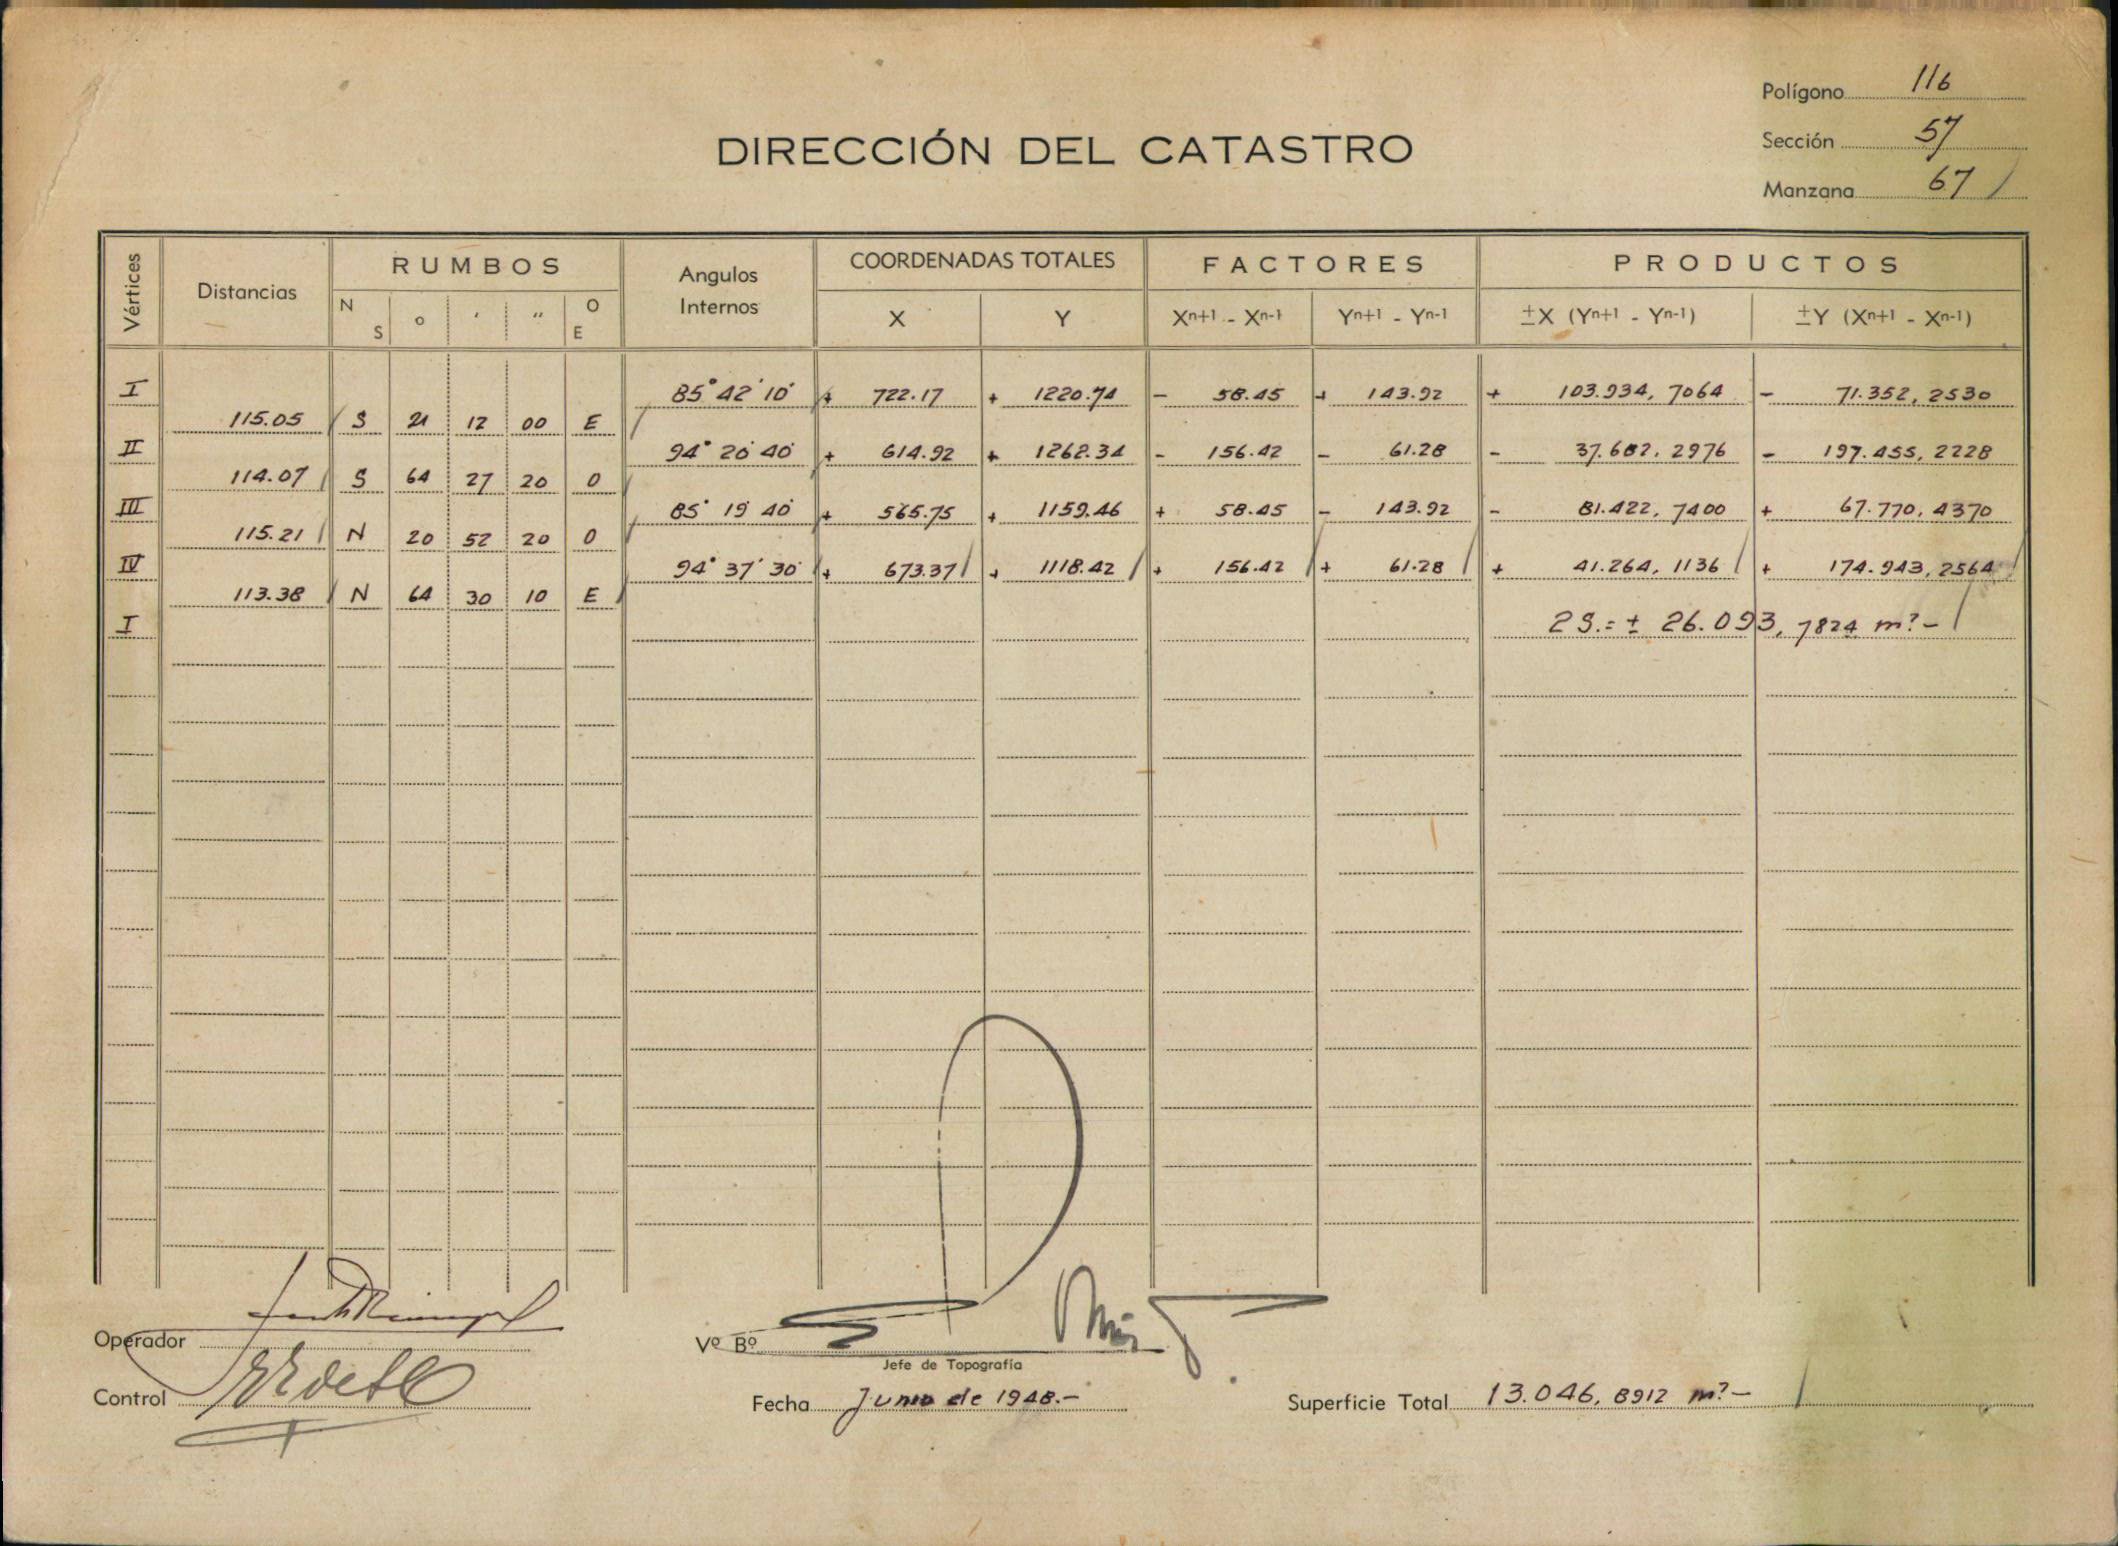 Polígono 116
DIRECCIÓN DEL CATASTRO
Sección 57
Manzana 67
Vértices Distancias RUMBOS Angulos Internos COORDENADAS TOTALES FACTORES PRODUCTOS
N S o ' " O E X Y Xn+1 - Xn-1 Yn+1 - Yn-1 ±X (Yn+1 - Yn-1) ±Y (Xn+1 - Xn-1)
I 85° 42' 10" + 722.17 + 1220.74 - 58.45 + 143.92 + 103.934, 7064 - 71.352, 2530
115.05 S 21 12 00 E
II 94° 20' 40" + 614.92 + 1262.34 - 156.42 - 61.28 - 37.682, 2976 - 197.455, 2228
114.07 S 64 27 20 O
III 85° 19' 40" + 565.75 + 1159.46 + 58.45 - 143.92 - 81.422, 7400 + 67.770, 4370
115.21 N 20 52 20 O
IV 94° 37' 30" + 673.37 + 1118.42 + 156.42 + 61.28 + 41.264, 1136 + 174.943, 2564
113.38 N 64 30 10 E
I 2S.= ± 26.093, 7824 m²-
Operador
Vº Bº
Jefe de Topografía
Control
Fecha Junio de 1948.-
Superficie Total 13.046, 8912 m²-